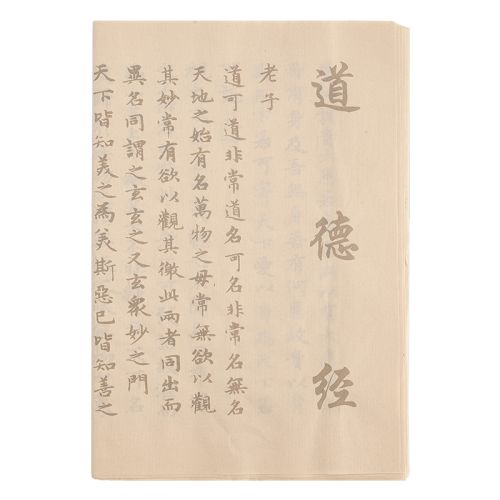 道德经
老子
道可道非常道名可名非常名無名
天地之始有名萬物之母常無欲以觀
其妙常有欲以觀其徼此兩者同出而
異名同謂之玄玄之又玄衆妙之門
天下皆知美之為美斯惡已皆知善之